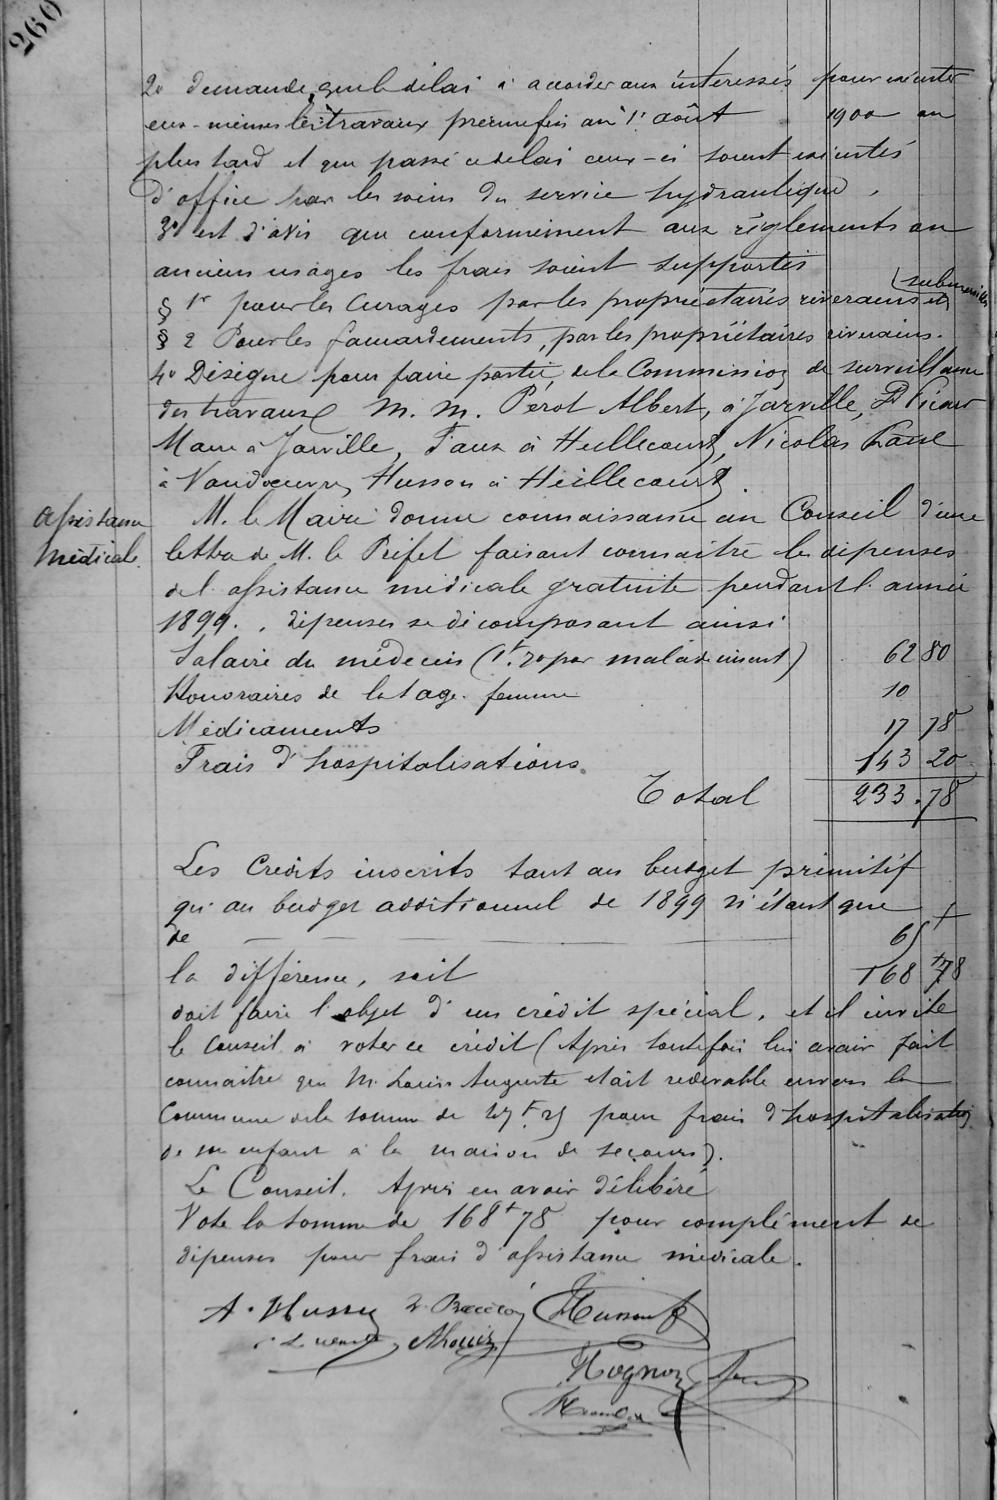 260
2° demande que le délai à accorder aux intéressés pour exécuter
eux-mêmes les travaux prenne fin au 1er août 1900 au
plus tard et que passé ce délai ceux-ci soient exécutés
d'office par les soins du service hydraulique.
3° est d'avis que conformément aux règlements ou
anciens usages les frais soient supportés
§ 1er pour les curages par les propriétaires riverains et submersibles
§ 2 Pour les faucardements, par les propriétaires riverains.
4° Désigne pour faire partie de la Commission de surveillance
des travaux M. M. Perot Albert, à Jarville,
Maire à Jarville, Faux à Heillecourt, Nicolas
à Vandoeuvre, Husson à Heillecourt.
Assistance
médicale.
M. le Maire donne connaissance au Conseil d'une
lettre de M. le Préfet faisant connaître les dépenses
de l'assistance médicale gratuite pendant l'année
1899., dépenses se décomposant ainsi
Salaire du médecin (1f. 20 par malade inscrit) 62 80
Honoraires de la sage-femme 10
Médicaments 17 78
Frais d'hospitalisations 143 20
Total 233.78
Les crédits inscrits tant au budget primitif
qu'au budget additionnel de 1899 n'étant que
de 65f
la différence, soit 168f 78
doit faire l'objet d'un crédit spécial, et il invite
le Conseil à voter ce crédit (Après toutefois lui avoir fait
connaître que M. Louis Auguste était redevable envers la
Commune de la somme de pour frais d'hospitalisation
de son enfant à la maison de secours).
Le Conseil. Après en avoir délibéré
Vote la somme de 168f 78 pour complément de
dépenses pour frais d'assistance médicale.
A. Husson Husson
Hognon